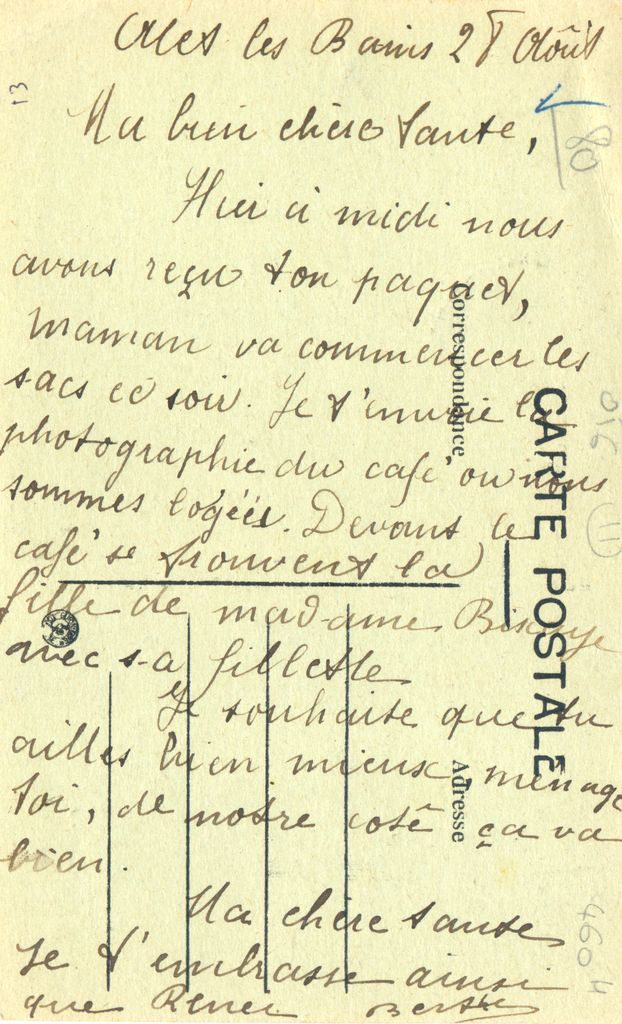 Alet les Bains 28 Août
13
80
Ma bien chère tante,
Hier à midi nous
avons reçu ton paquet,
maman va commencer les
sacs ce soir. Je t'envoie la
photographie du café où nous
sommes logées. Devant le
café se trouvent la
fille de madame
avec sa fillette
Je souhaite que tu
ailles bien mieux, ménage
toi, de notre coté ça va
bien.
Ma chère tante
Je t'embrasse ainsi
que Renée Berthe
Correspondance
CARTE POSTALE
Adresse
11